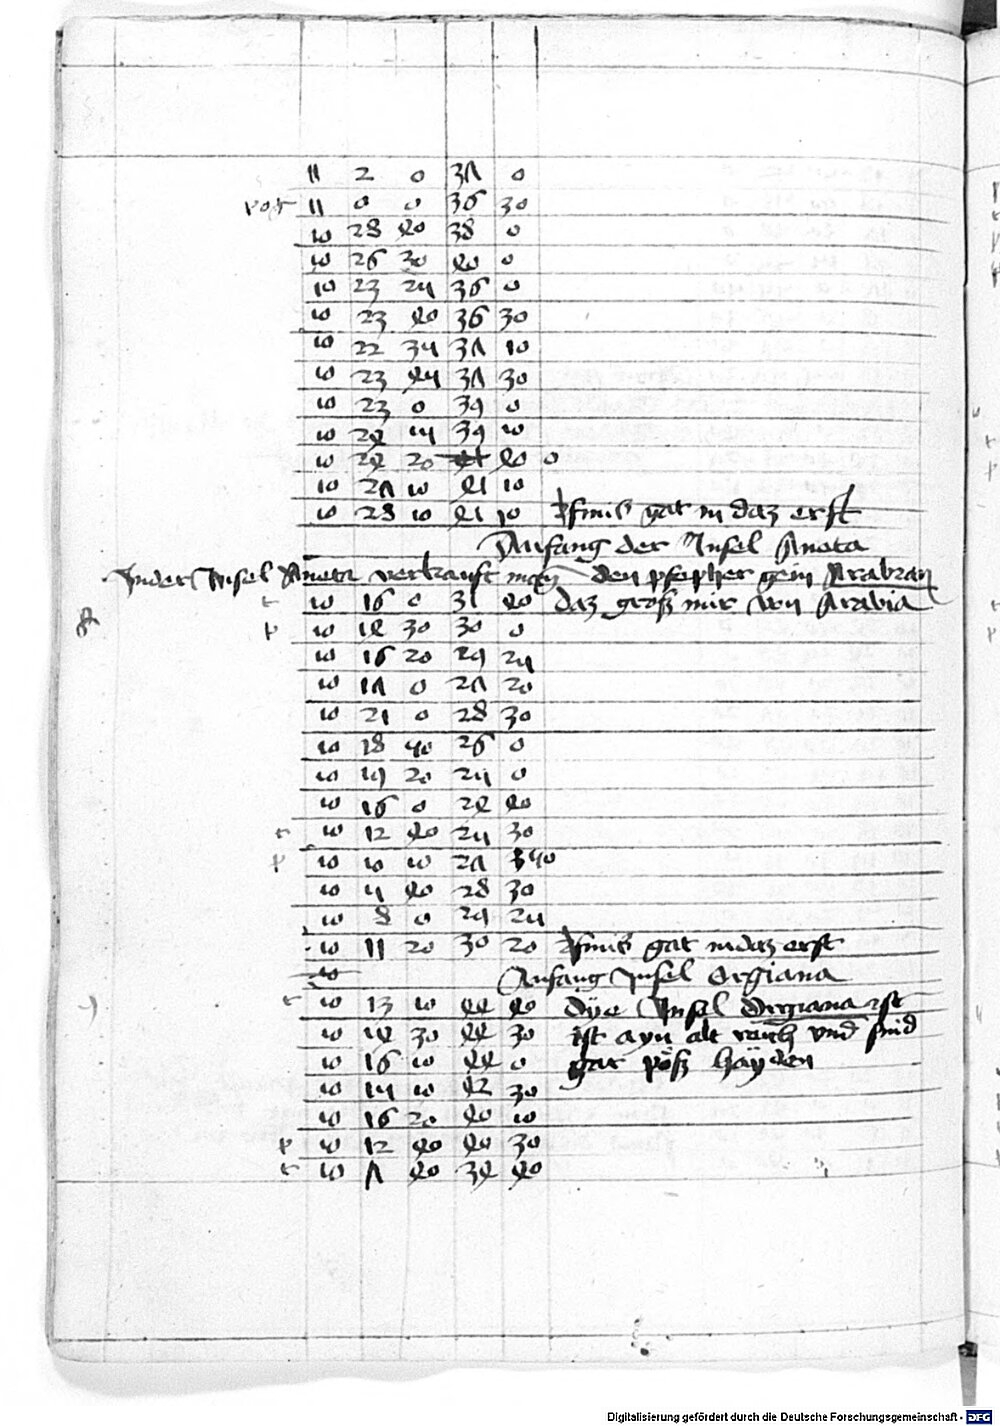 11 2 0 37 0
11 0 0 36 30
10 28 40 38 0
10 26 30 40 0
10 23 25 36 0
10 23 40 36 30
10 22 35 37 10
10 23 45 37 30
10 23 0 39 0
10 24 15 39 10
10 24 20 40 0
10 27 10 41 10
10 28 10 41 10 finis gat in daz erst
Anfang der Insel Aneta
In der Insel Aneta verkauft man den pfepher gein Arabian
10 16 0 31 40 daz groß mir von Arabia
10 14 30 30 0
10 16 20 29 25
10 17 0 27 20
10 21 0 28 30
10 18 50 26 0
10 15 20 25 0
10 16 0 24 40
10 12 40 25 30
10 10 10 27 50
10 5 40 28 30
10 8 0 29 25
10 11 20 30 20 finis gat in daz erst
10 Anfang Insel Orgiana
10 13 10 44 40 dÿe Insel Orgiana ist
10 14 30 44 30 ist ayn alt reich vnd sind
10 16 10 44 0 gar pöß hayden
10 15 10 42 30
10 16 20 40 10
10 12 40 40 30
10 7 40 34 40
Digitalisierung gefördert durch die Deutsche Forschungsgemeinschaft - DFG